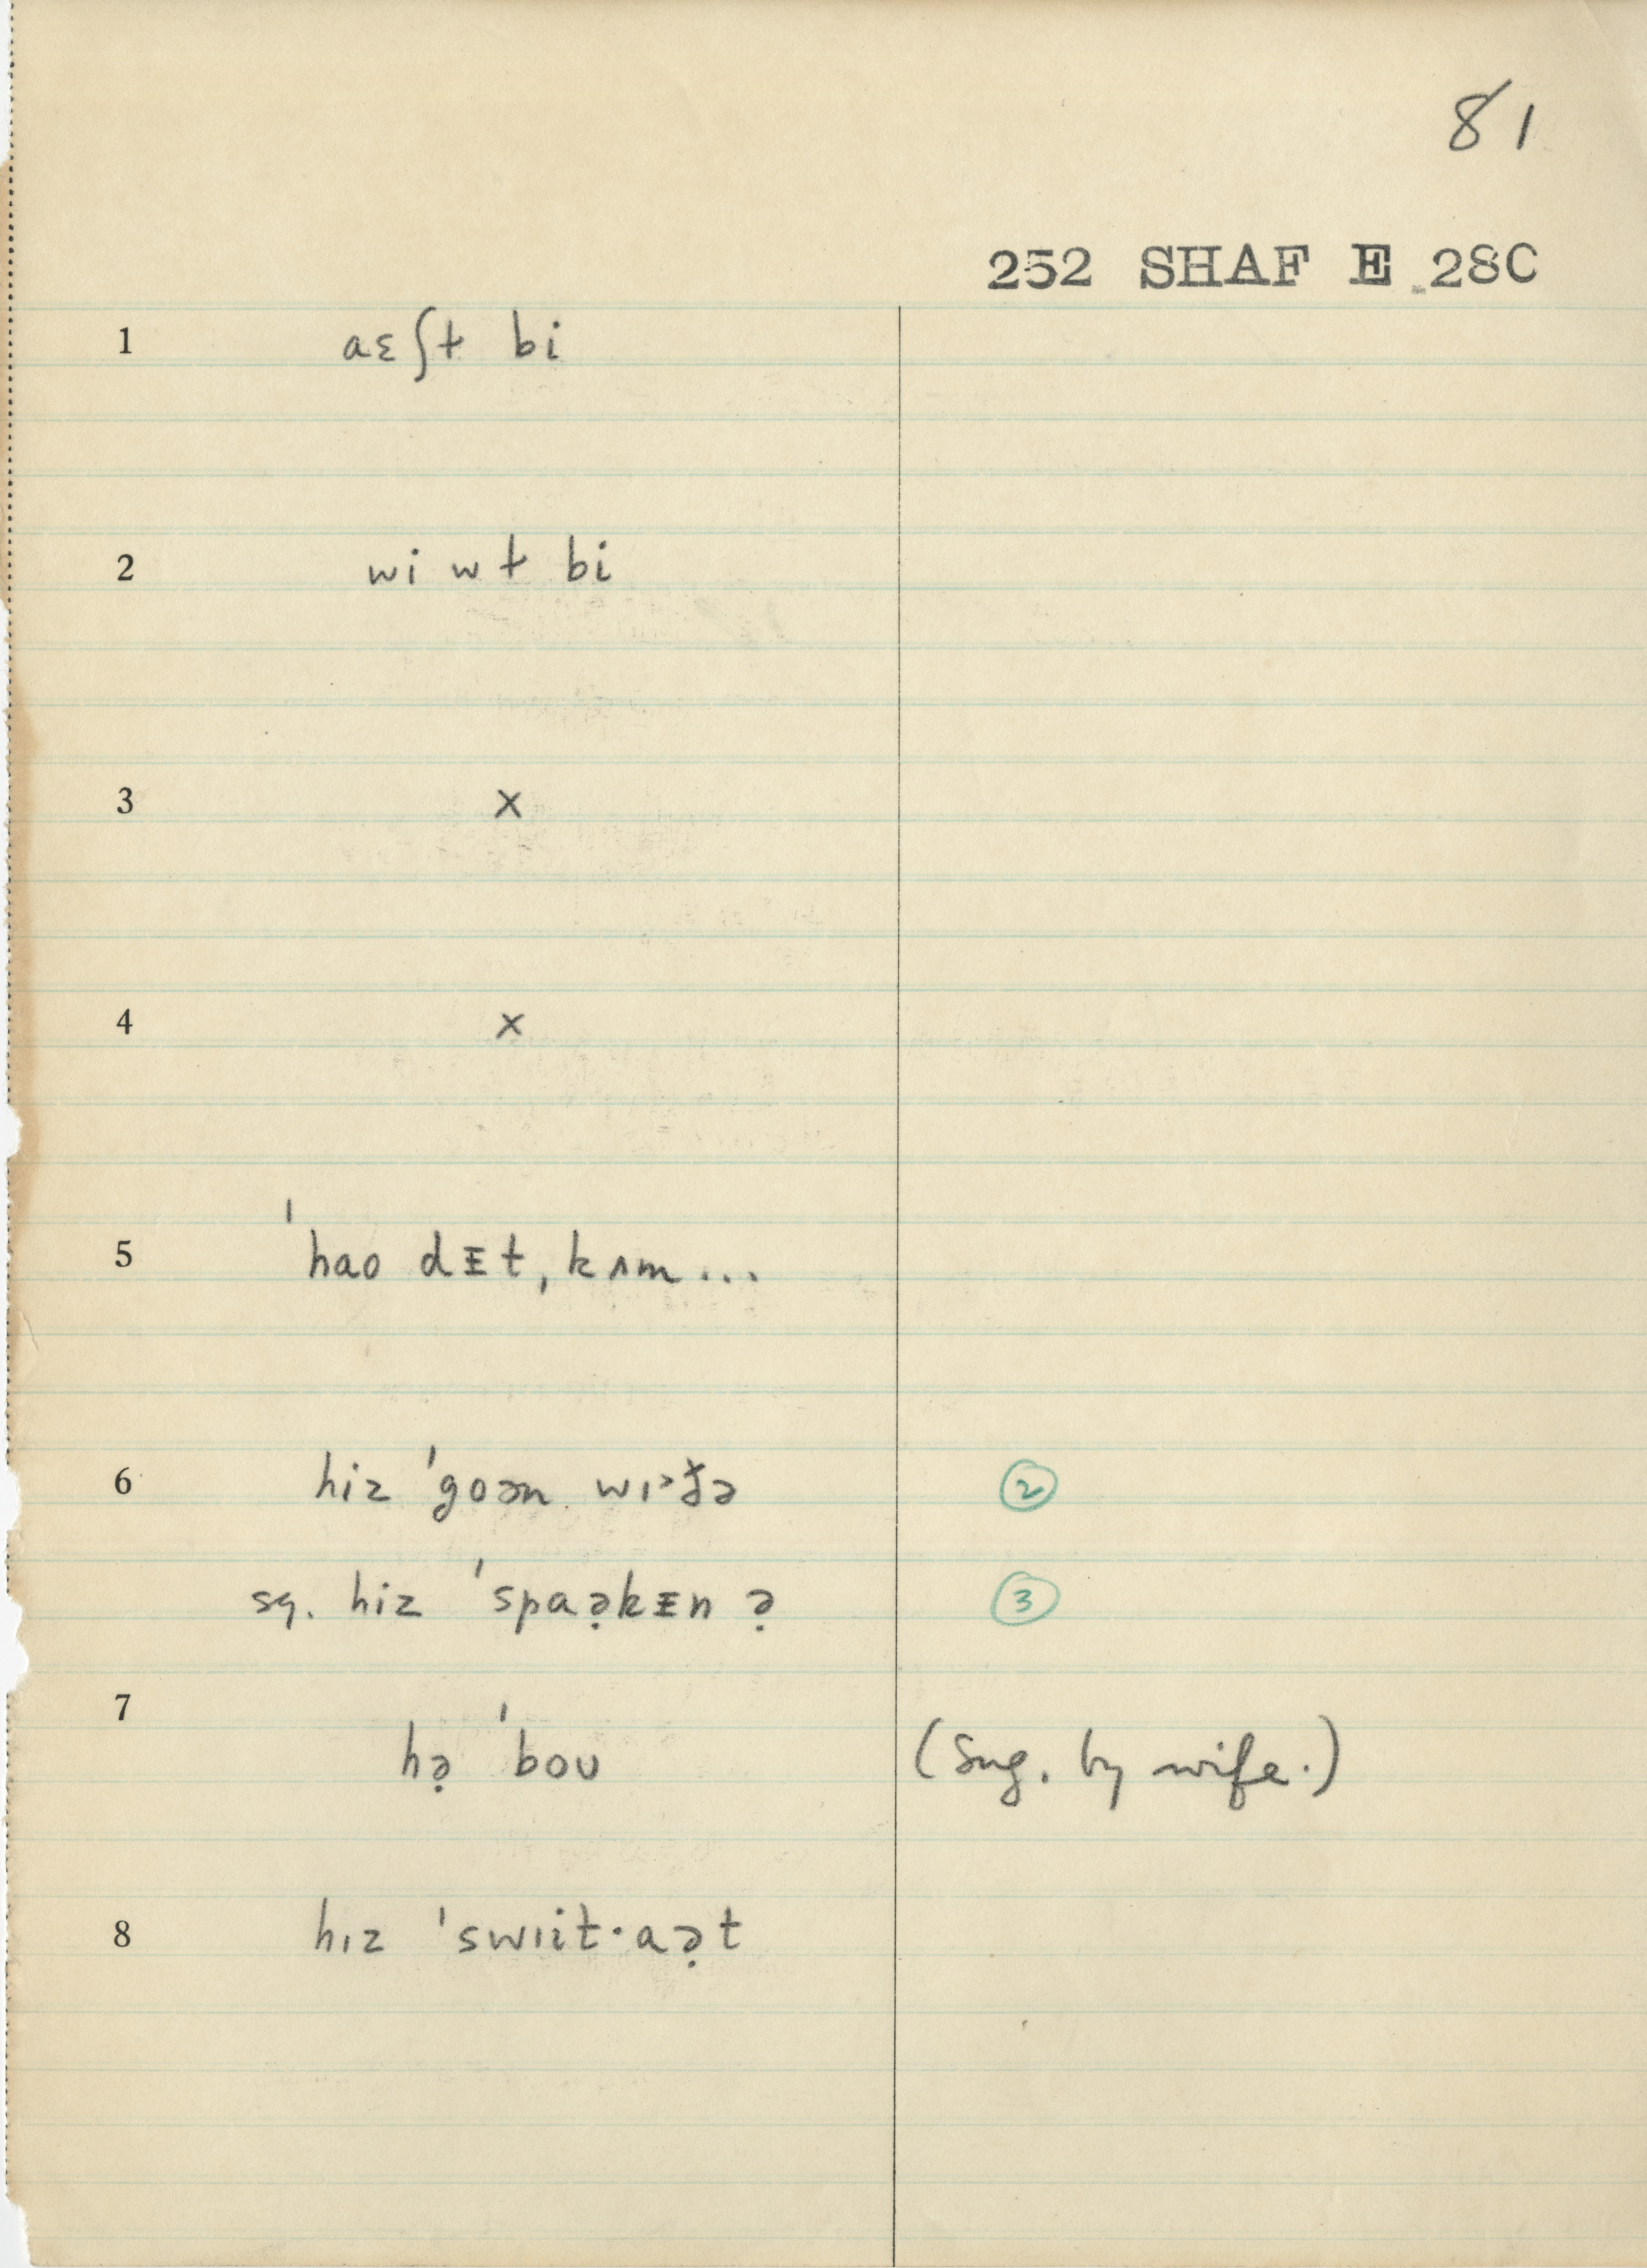 81
252 SHAF E 28C
1 aɛʃɫ bi
2 wi wɫ bi
3 x
4 x
5 ˈhao dᵻt, kʌm...
6 hiz ˈgoən ②
sq. hiz ˈspaə̣kᵻn ə̣ ③
7
hə̣ ˈboʊ (Sug. by wife.)
8 hɪz ˈswɪit·aə̣t